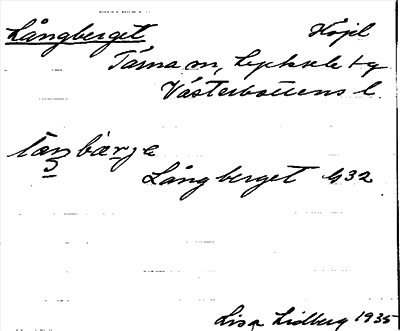 Långberget Höjd
Tärna sn, Lycksele tg
Västerbottens l.
Långberget G32
Lisa Lidberg 1935